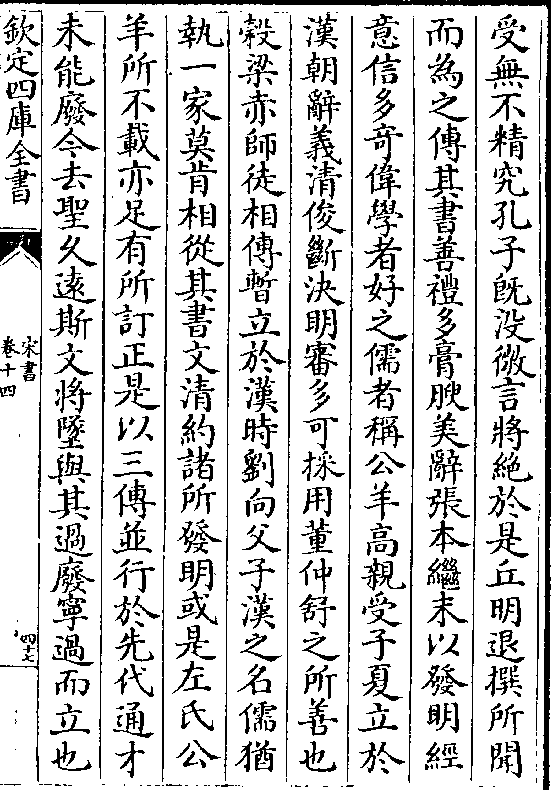 受無不精究孔子既没微言將絶於是丘明退撰所聞
而為之傳其書善禮多膏腴美辭張本繼末以發明經
意信多奇偉學者好之儒者稱公羊高親受子夏立於
漢朝辭義清俊斷決明審多可採用董仲舒之所善也
榖梁赤師徒相傳暫立於漢時劉向父子漢之名儒猶
執一家莫肯相從其書文清約諸所發明或是左氏公
羊所不載亦足有所訂正是以三傳並行於先代通才
未能廢今去聖久遠斯文將墜與其過廢寧過而立也
欽定四庫全書
宋書
卷十四
四十七